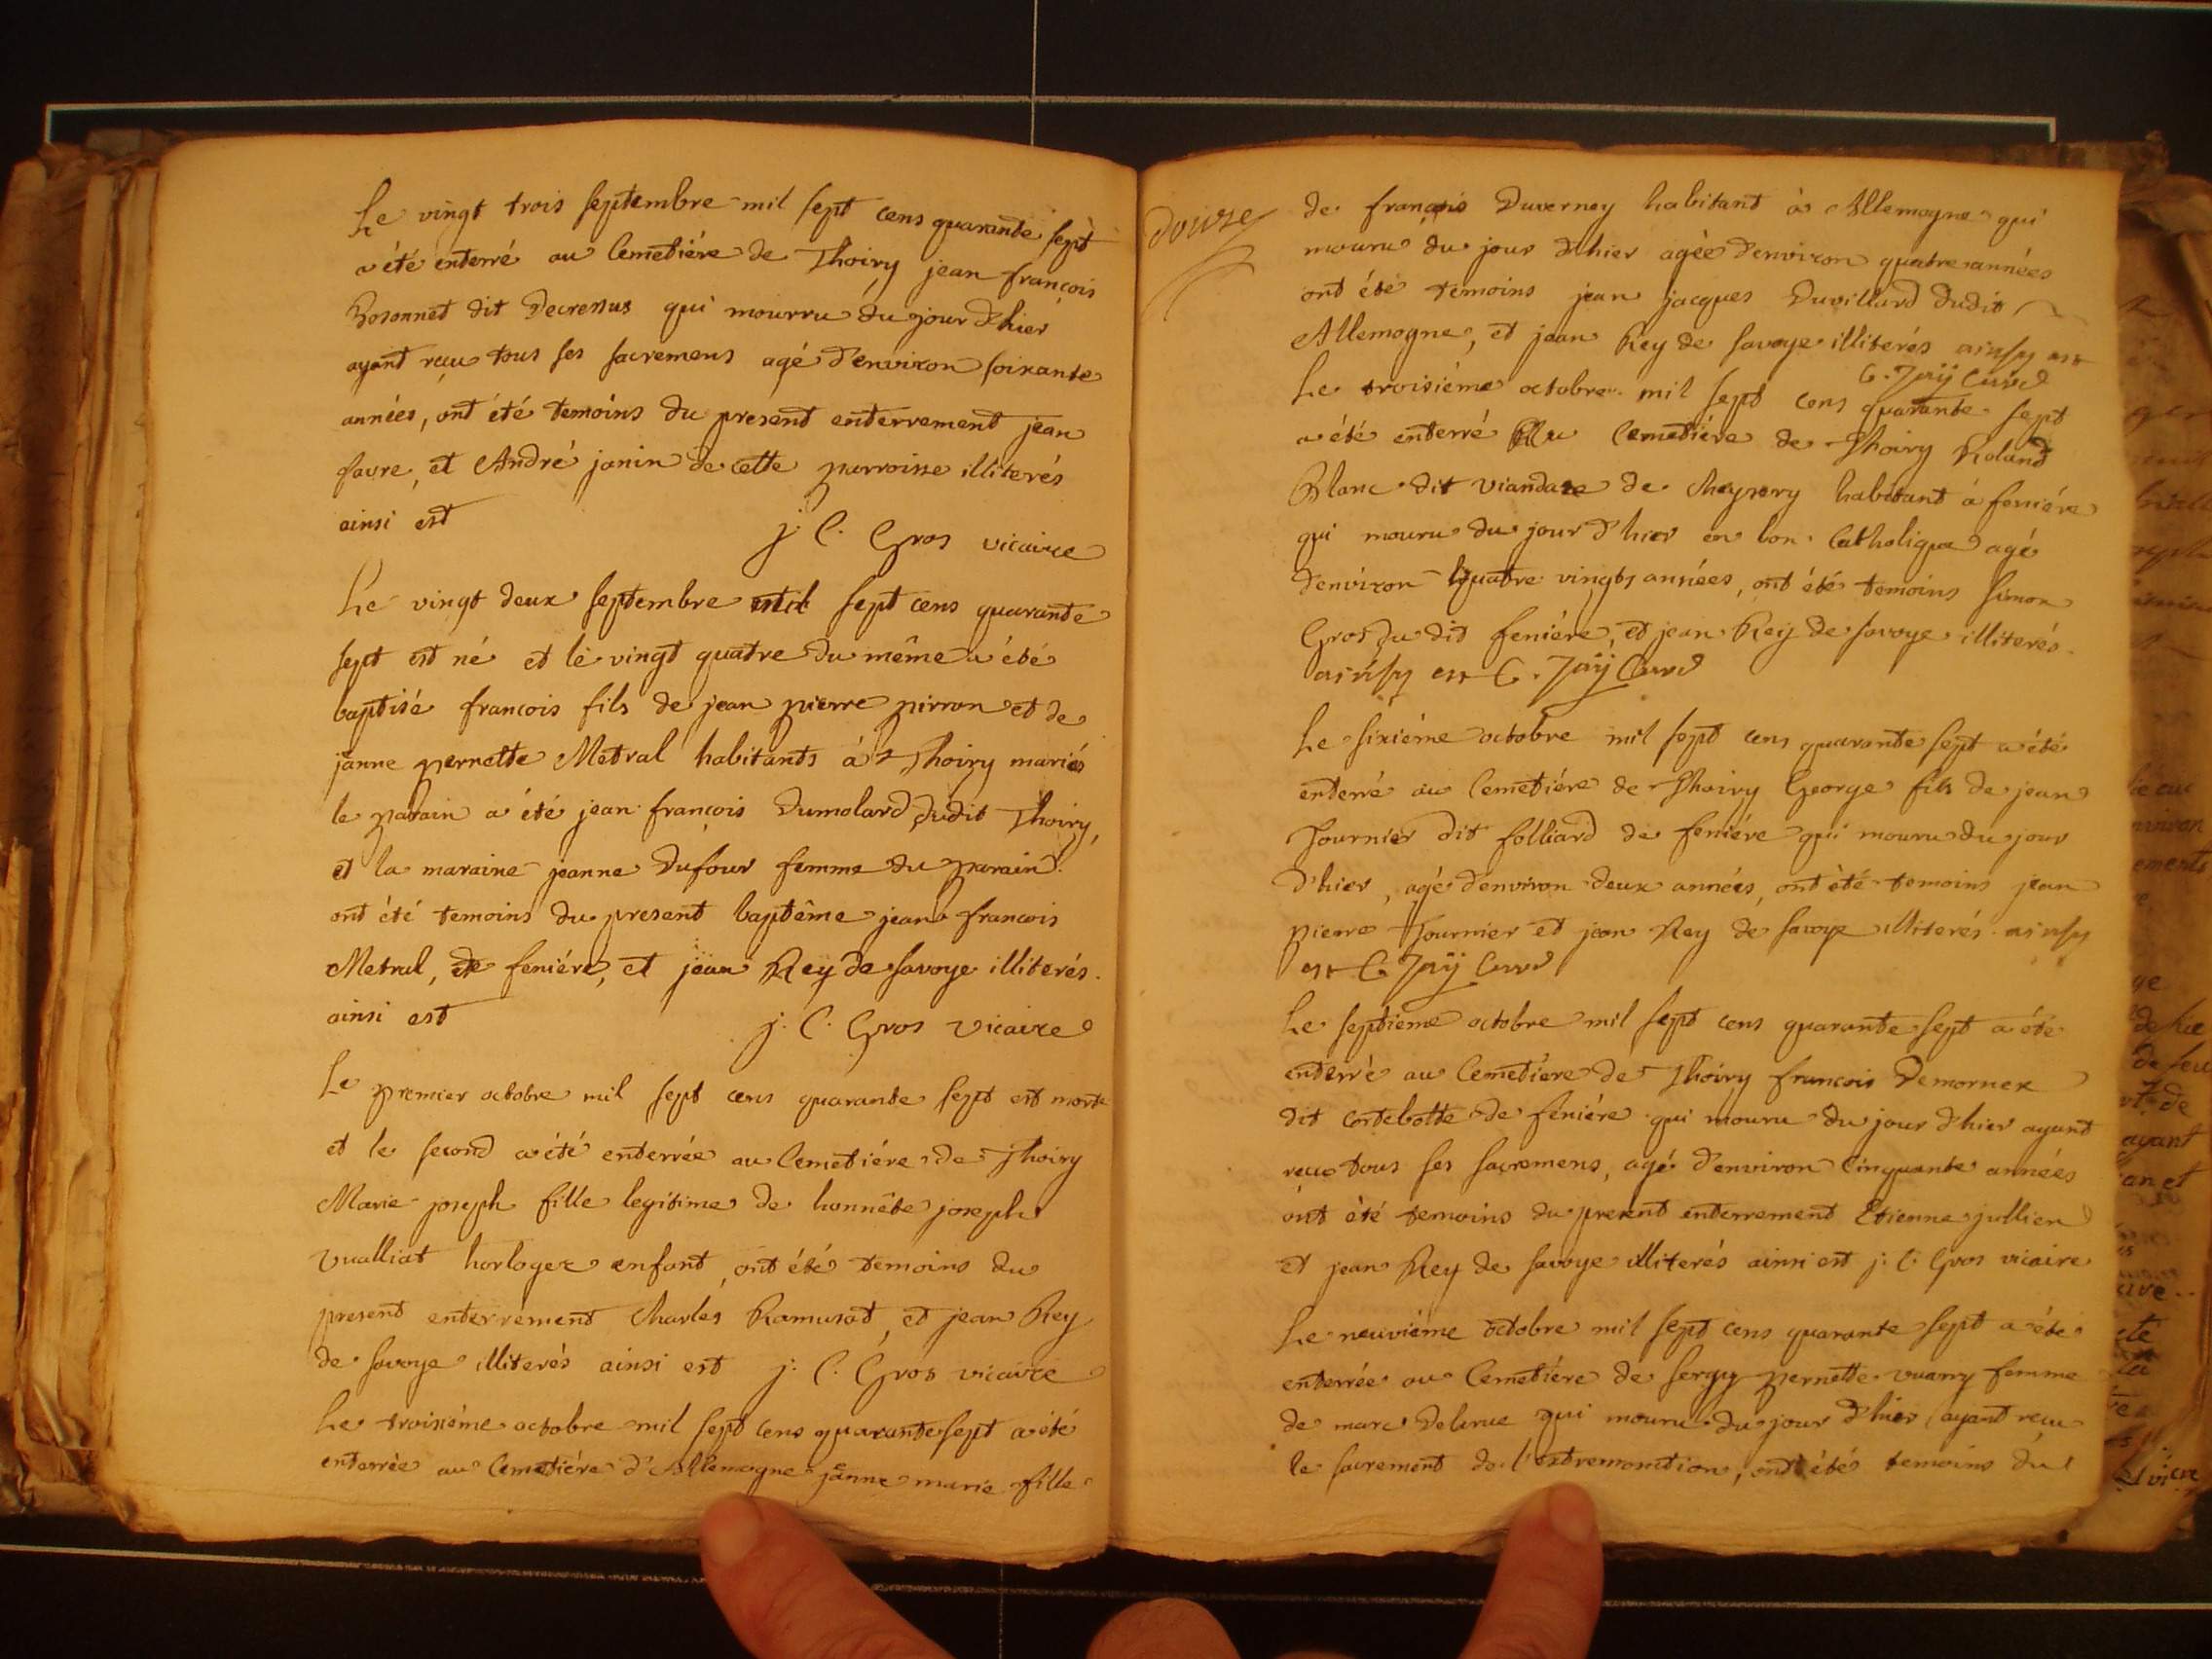 Le vingt trois septembre mil sept cens quarante sept
a été enterré au Cemetiére de Thoiry jean françois
Bosonnet dit Decressus qui mourru du jour d'hier
ayant reçu tous ses sacremens agé d'environ soixante
années, ont été temoins du present enterrement jean
favre, et André janin de cette parroisse illiterés
ainsi est
j. C. Gros vicaire
Le vingt deux septembre mil sept cens quarante
sept est né et le vingt quatre du même a été
baptisé francois fils de jean pierre pirron et de
janne pernette Metral habitants à Thoiry mariés
le parain a été jean françois Dumolard dudit Thoiry,
et la maraine jeanne Dufour femme du parain.
ont été temoins du present baptême jean francois
Metral, de feniére, et jean Reÿ de savoye illiterés.
ainsi est
j. C. Gros Vicaire
Le premier octobre mil sept cens quarante sept est morte
et le second a été enterrée au Cemetiére de Thoiry
Marie joseph fille legitime de honnête joseph
Vualliat horloger enfant, ont été temoins du
present enterrement Charles Ramusat, et jean Rey
de savoye illiterés ainsi est j. C. Gros vicaire
Le troisiéme octobre mil sept cens quarante sept a été
enterrée au Cemetiére d'Allemogne janne marie fille
douze
de françois Duverney habitant à Allemogne qui
mouru du jour d'hier agée d'environ quatre années
ont été temoins jean jacques Duvillard dudit
Allemogne, et jean Rey de savoye illiterés ainsy est
C. Jaÿ Curé
Le troisiéme octobre mil sept cens quarante sept
a été enterré Au Cemetiére de Thoiry Roland
Blanc dit viandaze de Cheysery habitant à feniére
qui mouru du jour d'hier en bon Catholique agé
d'environ quatre vingts années, ont été temoins Simon
Gros du dit feniére, et jean Reÿ de savoye illiterés.
ainsy est C. Jaÿ Curé
Le sixiéme octobre mil sept cens quarante sept a été
enterré au Cemetiére de Thoiry George fils de jean
Tournier dit folliard de feniére qui mouru du jour
d'hier, agé d'environ deux années, ont été temoins jean
pierre Tournier et jean Rey de savoye illiterés. ainsy
est C. Jaÿ Curé
Le septieme octobre mil sept cens quarante sept a été
enterré au Cemetiére de Thoiry francois Demornex
dit cortebotte de feniére qui mouru du jour d'hier ayant
reçu tous ses sacremens, agé d'environ Cinquante années
ont été temoins du present enterrement Etienne jullien
et jean Rey de savoye illiterés ainsi est j. C. Gros vicaire
Le neuviéme octobre mil sept cens quarante sept a été
enterrée au Cemetiére de sergy pernette vuarry femme
de marc Delurue qui mouru du jour d'hier ayant reçu
le sacrement de l'extremonction, ont été temoins du